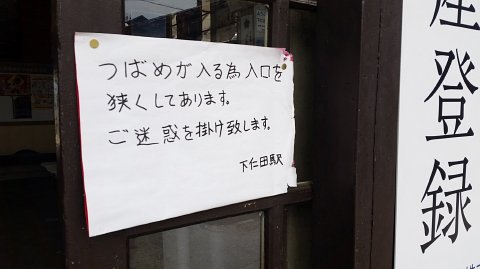 つばめが入る為入口を
狭くしてあります。
ご迷惑を掛け致します。
下仁田駅
産登録